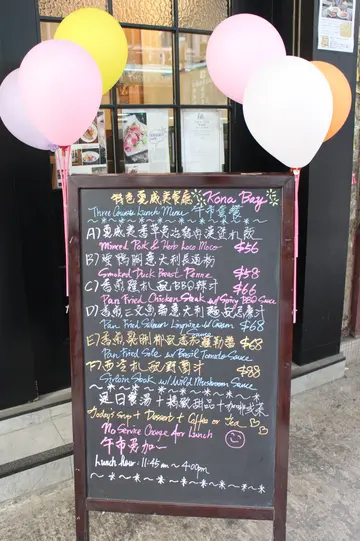 特色夏威夷餐廳 Kona Bay
Three Course Lunch Menu 午市套餐
A) 夏威夷香草免治豬肉漢堡扒飯
Minced Pork & Herb Loco Moco $56
B) 煙鴨胸意大利長通粉
Smoked Duck Breast Penne $58
C) 香煎雞扒 BBQ辣汁 $66
Pan Fried Chicken Steak w/ Spicy BBQ Sauce
D) 香煎三文魚扁意大利麵 忌廉汁
Pan Fried Salmon Linguine w/ Cream Sauce $68
E) 香煎 $68
Pan Fried Sole w/ Basil Tomato Sauce
F) 西冷扒 野菌汁 $88
Sirloin Steak w/ Wild Mushroom Sauce
是日餐湯 + 精緻甜品 + 咖啡或茶
Today's Soup + Dessert + Coffee or Tea
No Service Charge for Lunch
午市免加一
Lunch hour: 11:45am ~ 4:00pm